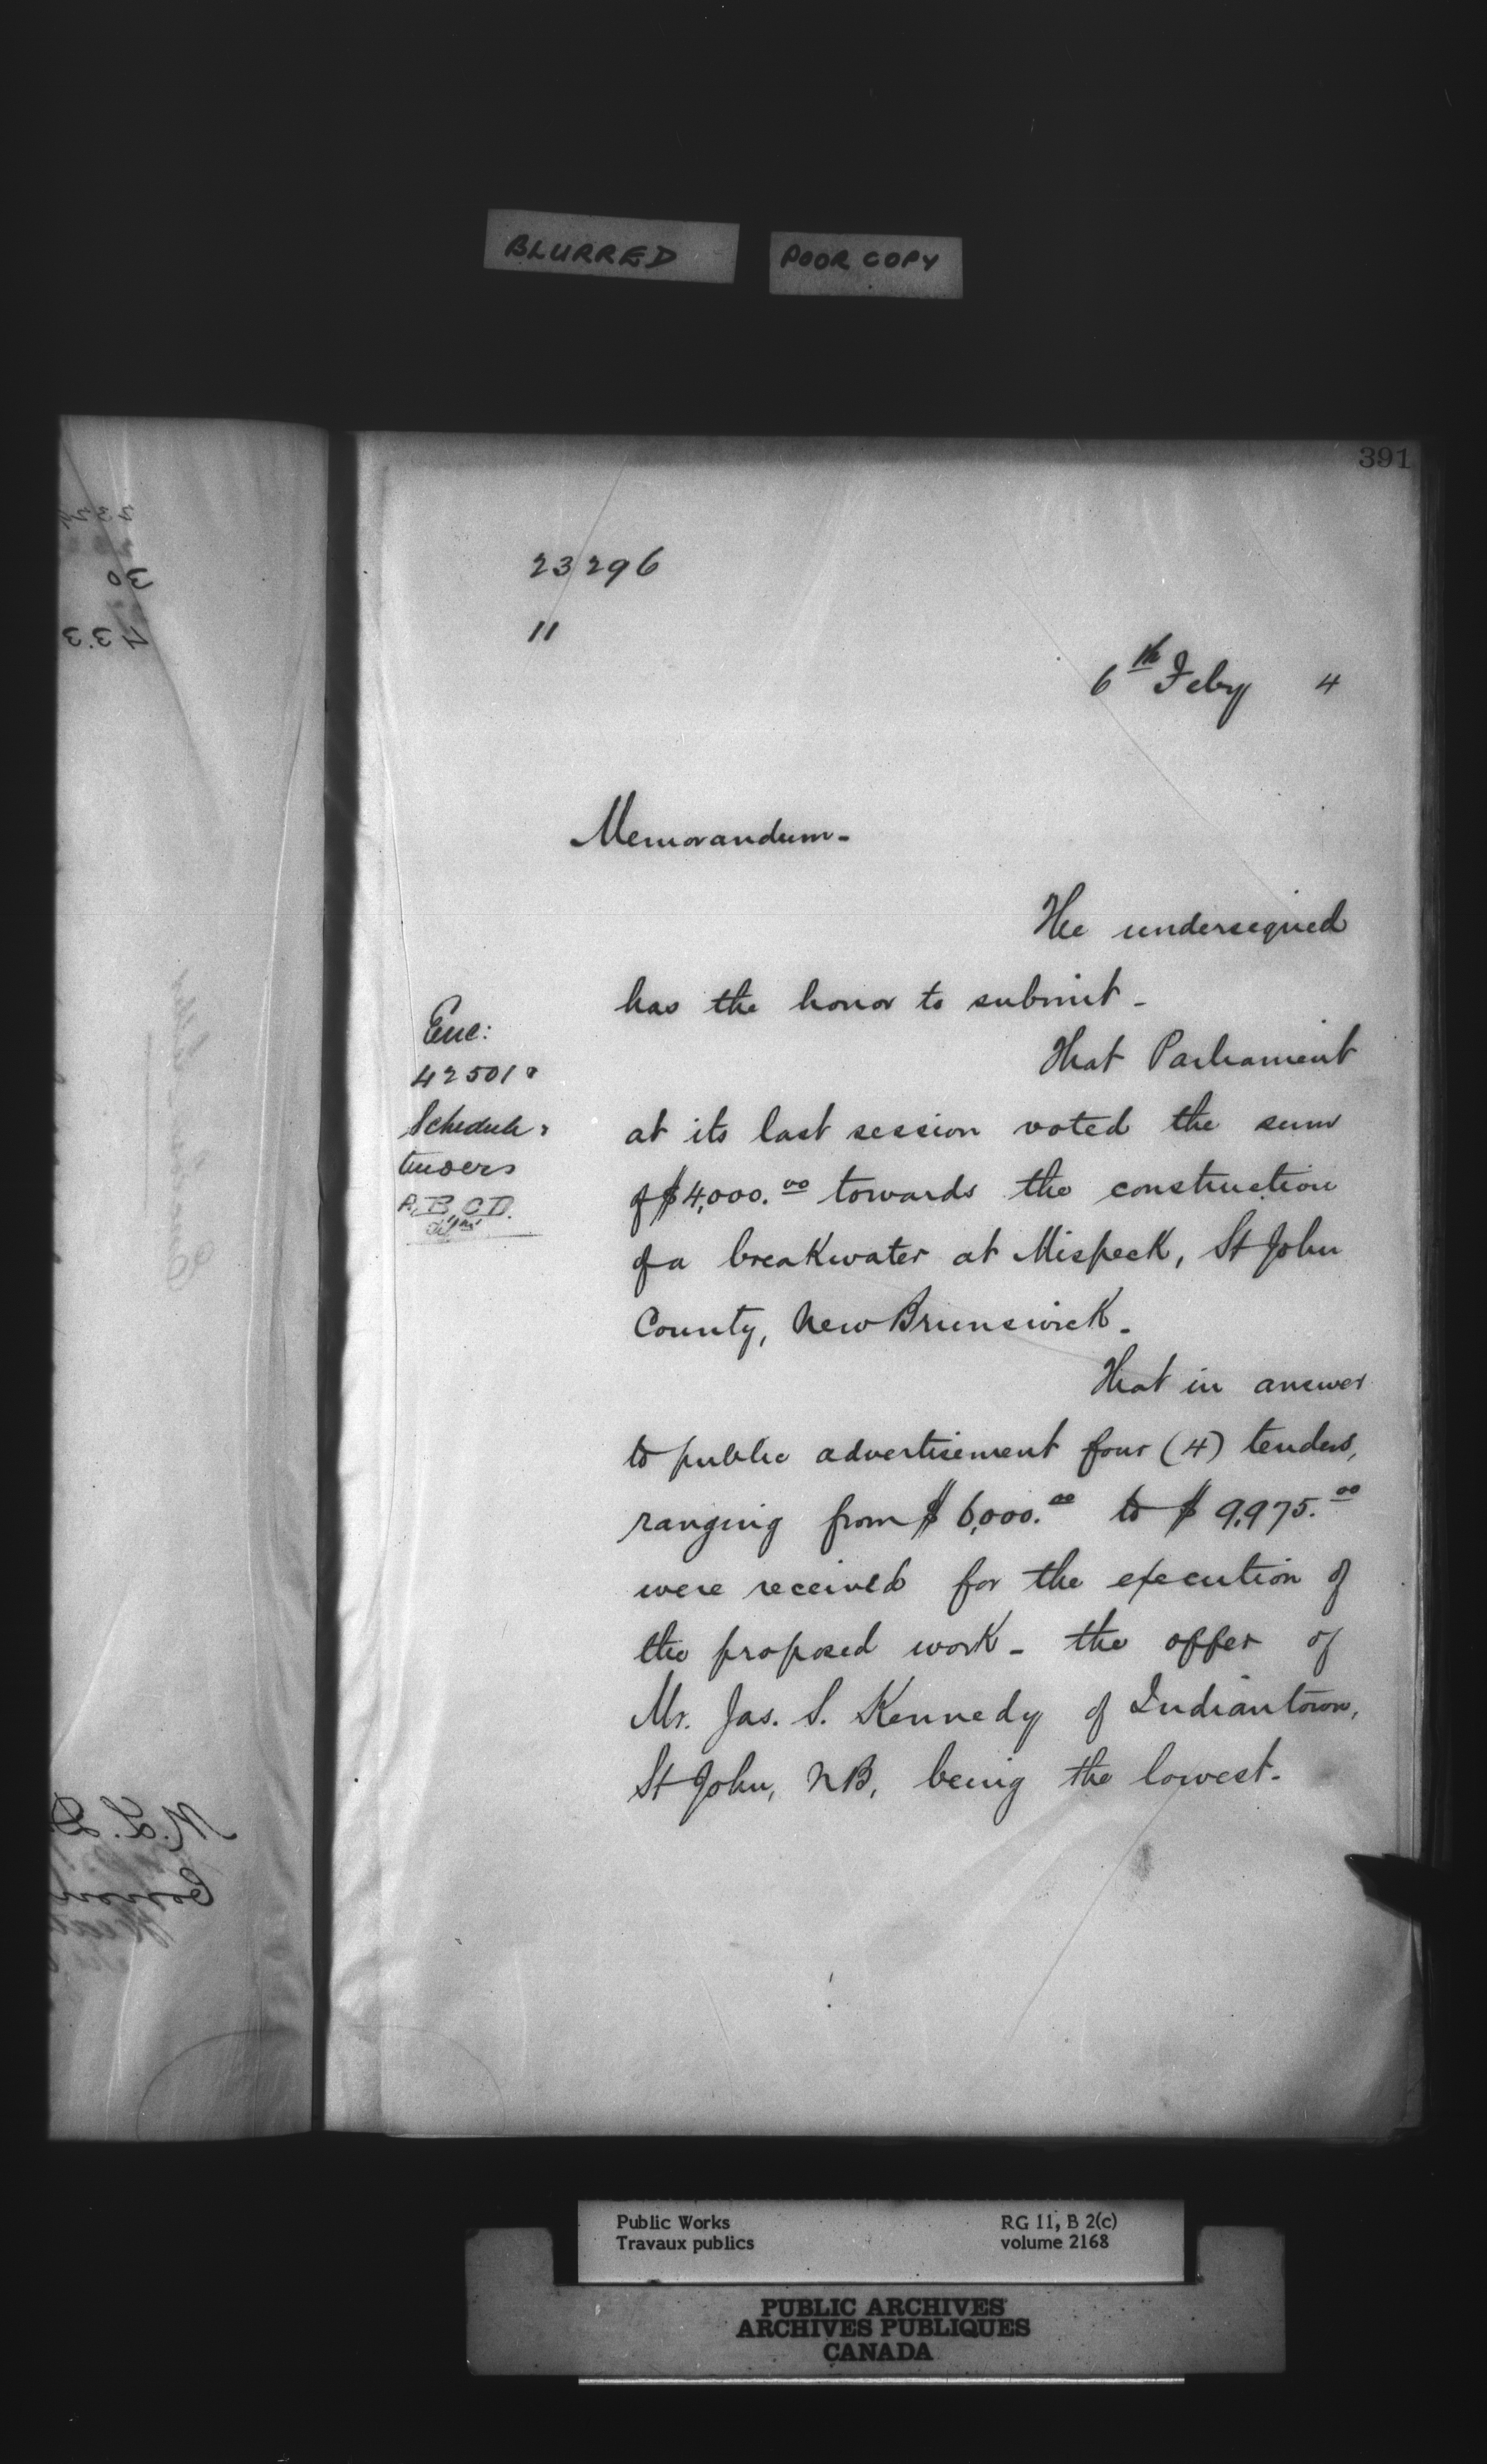 BLURRED
POOR COPY
391
23296
11
6th Feby 4
Memorandum-
The undersigned
has the honor to submit -
That Parliament
at its last session voted the sum
of $4,000.00 towards the construction
of a breakwater at Mispeck, St John
County, New Brunswick.
That in answer
to public advertisement four (4) tenders,
ranging from $ 6,000.00 to $ 9,975.00
were received for the execution of
the proposed work - the offer of
Mr. Jas. S. Kennedy of Indiantown,
St John, NB, being the lowest.
Enc:
42501
Schedule
tenders
A, B, C D.
Public Works
Travaux publics
RG 11, B 2(c)
volume 2168
PUBLIC ARCHIVES
ARCHIVES PUBLIQUES
CANADA